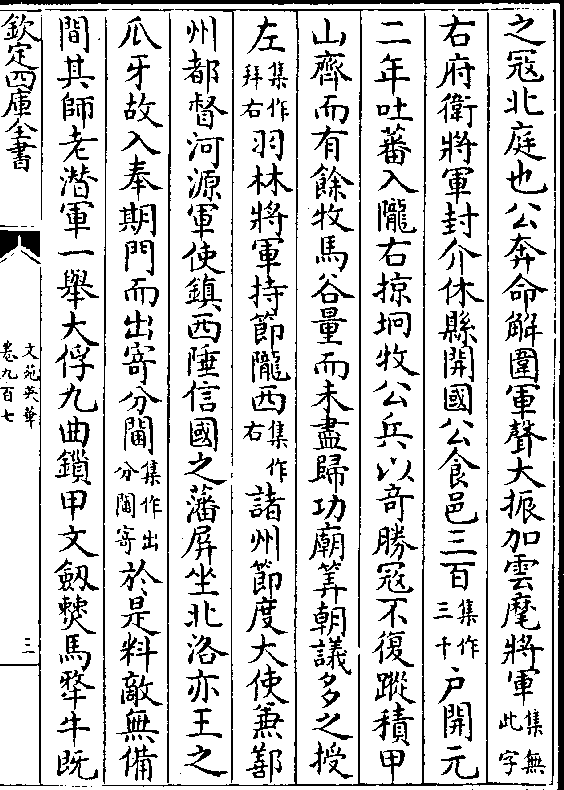 之冦北庭也公奔命解圍軍聲大振加雲麾將軍集無此字
右府衛將軍封介休縣開國公食邑三百集作三千户開元
二年吐蕃入隴右掠坰牧公兵以竒勝冦不復蹤積甲
山齊而有餘牧馬谷量而未盡歸功廟筭朝議多之授
左集作拜右羽林將軍持節隴西集作右諸州節度大使兼鄯
州都督河源軍使鎮西陲信國之藩屏坐北洛亦王之
爪牙故入奉期門而出寄分閫集作出分閫寄於是料敵無備
間其師老潛軍一舉大俘九曲鎖甲文劔㸅馬犛牛既
欽定四庫全書
文苑英華
卷九百七
三